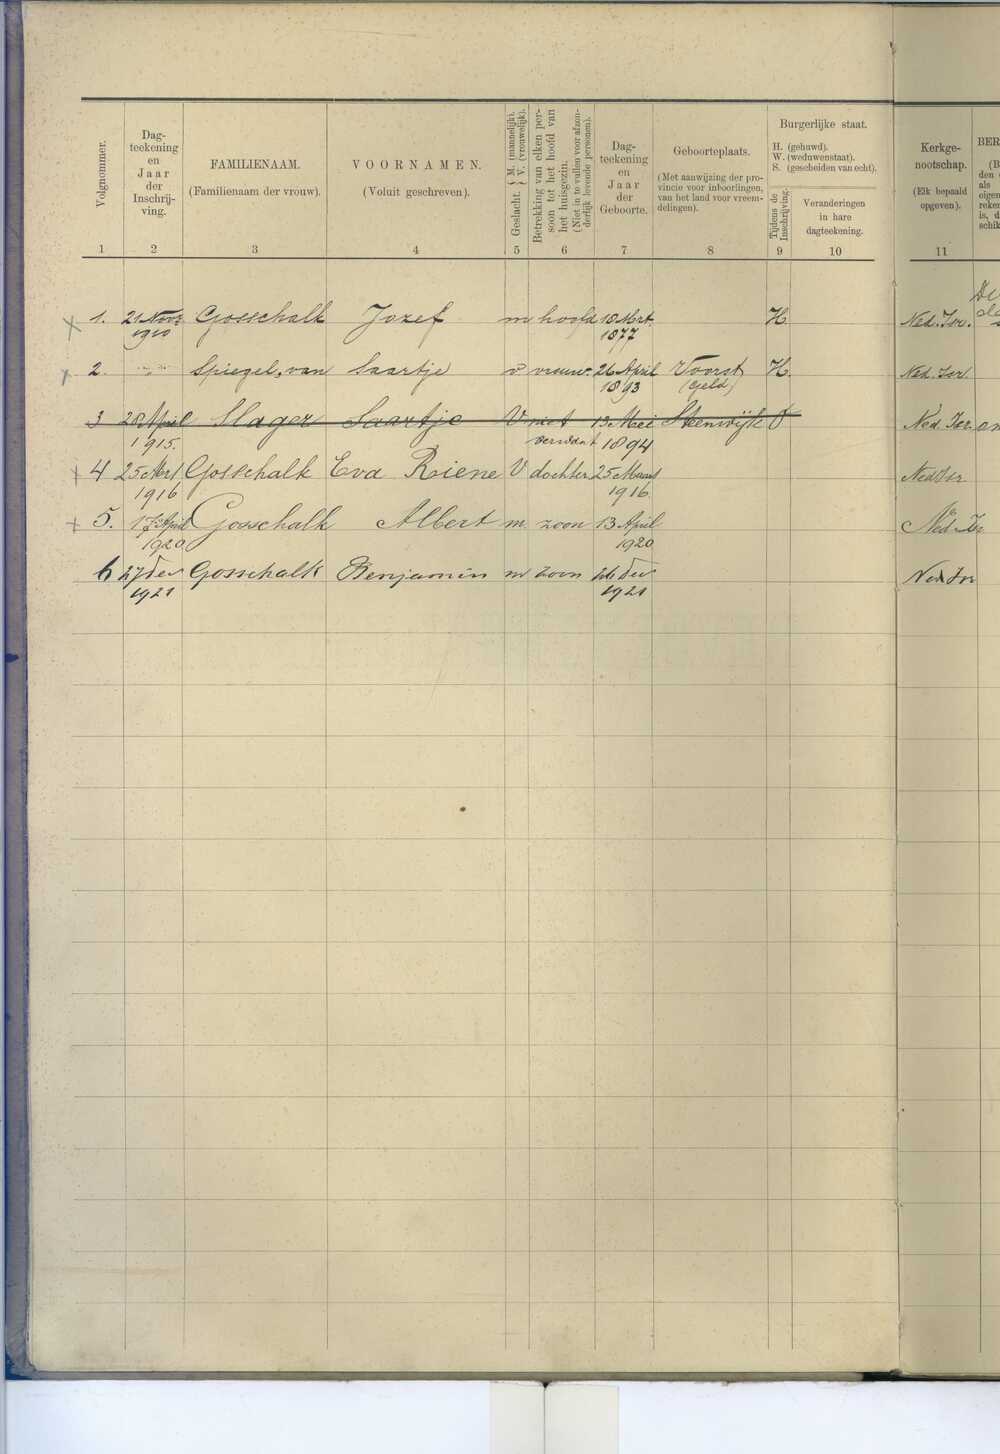 Volgnommer.
Dag-
teekening
en
Jaar
der
Inschrij-
ving.
FAMILIENAAM.
(Familienaam der vrouw).
VOORNAMEN.
(Voluit geschreven).
Geslacht. { M. (mannelijk). V. (vrouwelijk).
Betrekking van elken per-
soon tot het hoofd van
het huisgezin.
(Niet in te vullen voor afzon-
derlijk levende personen).
Dag-
teekening
en
Jaar
der
Geboorte.
Geboorteplaats.
(Met aanwijzing der pro-
vincie voor inboorlingen,
van het land voor vreem-
delingen).
Burgerlijke staat.
H. (gehuwd).
W. (weduwenstaat).
S. (gescheiden van echt).
Tijdens de
Inschrijving.
Veranderingen
in hare
dagteekening.
Kerkge-
nootschap.
(Elk bepaald
opgeven).
BER
(B
den
als
eigen
reken
is, d
schik
1 2 3 4 5 6 7 8 9 10 11
1. 21 Nov. Gosschalk Jozef m hoofd 18 Mrt. H Ned. Isr.
1910 1877
2. Spiegel, van Saartje v vrouw 26 April Voorst H. Ned. Isr.
1893 (Geld)
3 28 April Slager Saartje V niet 13 Mei Steenwijk O Ned. Isr
1915. verwant 1894
4 25 Mrt Gosschalk Eva Riene V dochter 25 Maart Ned Isr
1916 1916
5. 17 April Gosschalk Albert m. zoon 13 April Ned. Isr
1920 1920
6 27 Dec Gosschalk Benjamin m zoon 26 Dec Ned Isr
1921 1921